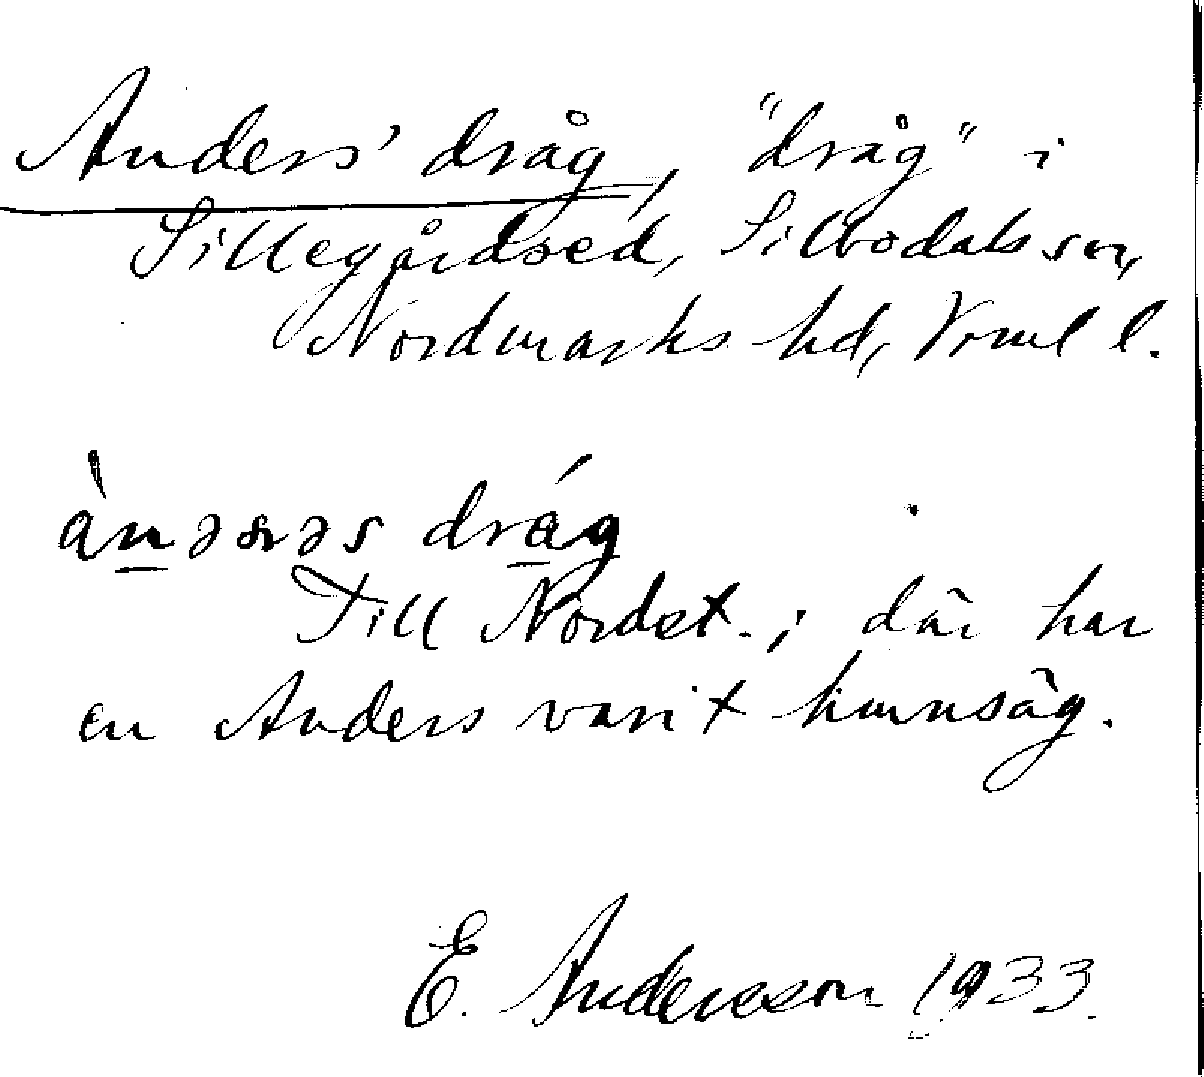 Anders' dråg, "dråg" i
Sillegårdsed, Silbodals sn,
Nordmarks hd, Vrml l.
dråg
Till Nordst.; där har
en Anders varit hemsäg.
E. Andersson 1933.